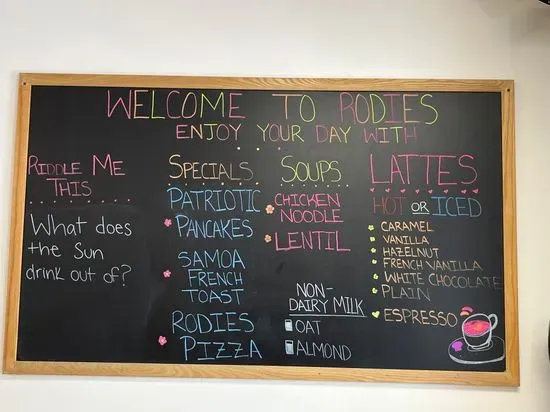 WELCOME TO RODIES
ENJOY YOUR DAY WITH
RIDDLE ME
THIS
What does
the Sun
drink out of?
SPECIALS
PATRIOTIC
PANCAKES
SAMOA
FRENCH
TOAST
RODIES
PIZZA
SOUPS
CHICKEN
NOODLE
LENTIL
NON-
DAIRY MILK
OAT
ALMOND
LATTES
HOT OR ICED
CARAMEL
VANILLA
HAZELNUT
FRENCH VANILLA
WHITE CHOCOLATE
PLAIN
ESPRESSO